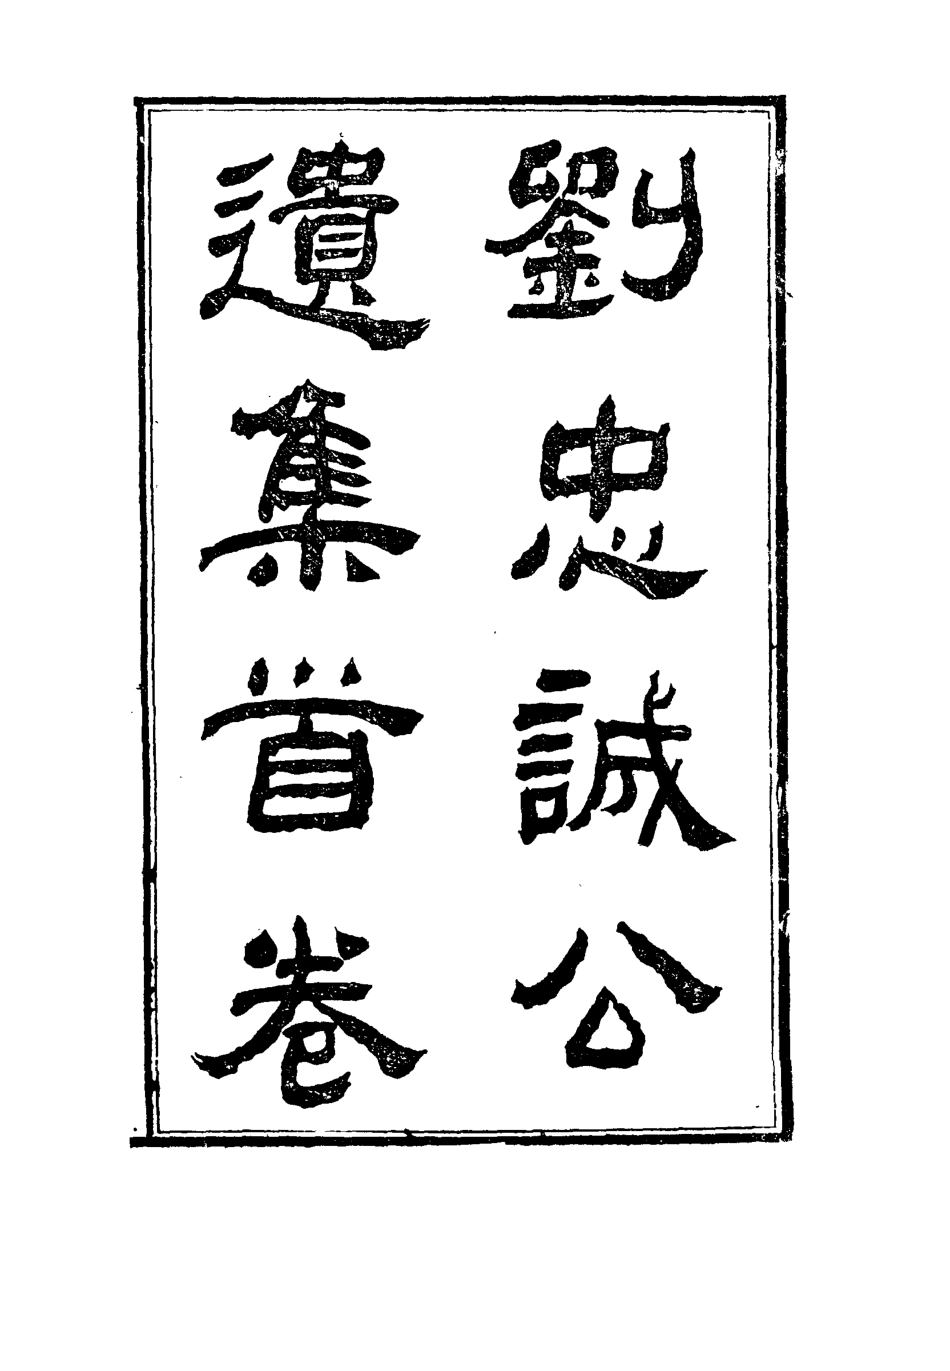 劉忠誠公
遺集首卷